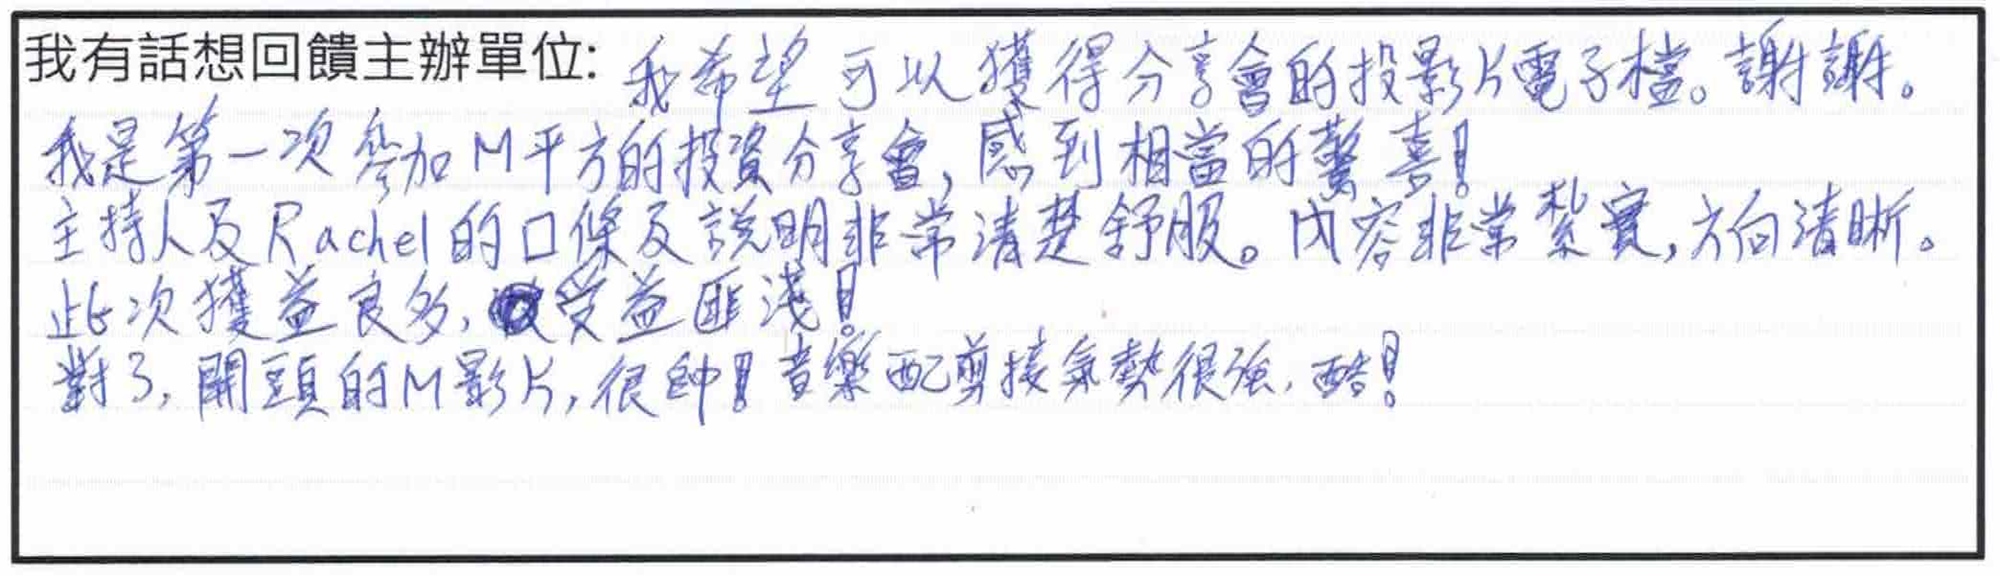 我有話想回饋主辦單位: 我希望可以獲得分享會的投影片電子檔。謝謝。
我是第一次參加M平方的投資分享會,感到相當的驚喜!
主持人及Rachel的口條及說明非常清楚舒服。內容非常紮實,方向清晰。
此次獲益良多,受益匪淺!
對了,開頭的M影片,很帥!音樂配剪接氣勢很強,酷!